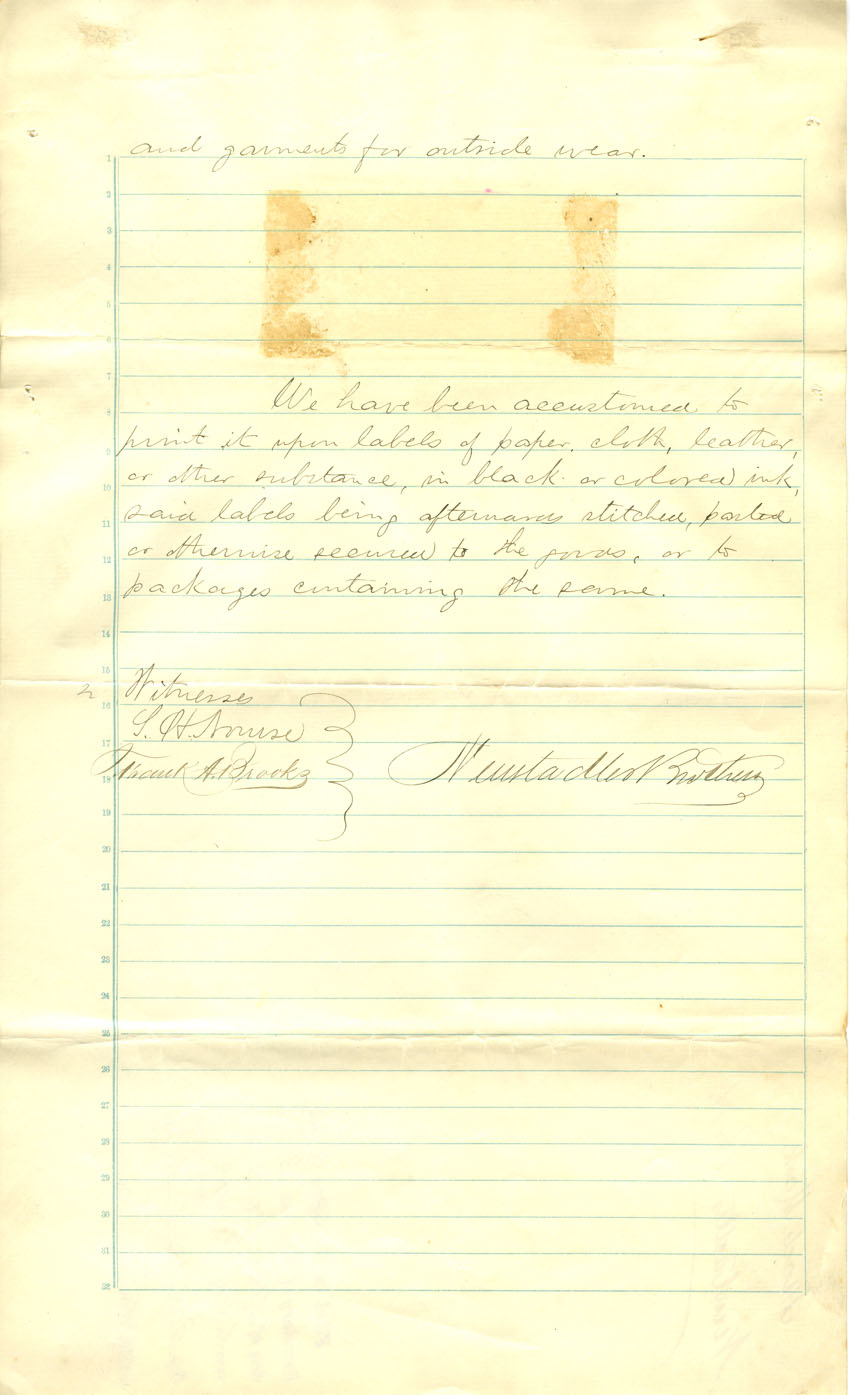 and garments for outside wear.
We have been accustomed to
print it upon labels of paper, cloth, leather,
or other substance, in black or colored ink,
said labels being afterwards stitched, pasted
or otherwise secured to the goods, or to
packages containing the same.
2 Witnesses
S. H. Nourse
Frank A. Brooks
Neustadter Brothers
1
2
3
4
5
6
7
8
9
10
11
12
13
14
15
16
17
18
19
20
21
22
23
24
25
26
27
28
29
30
31
32